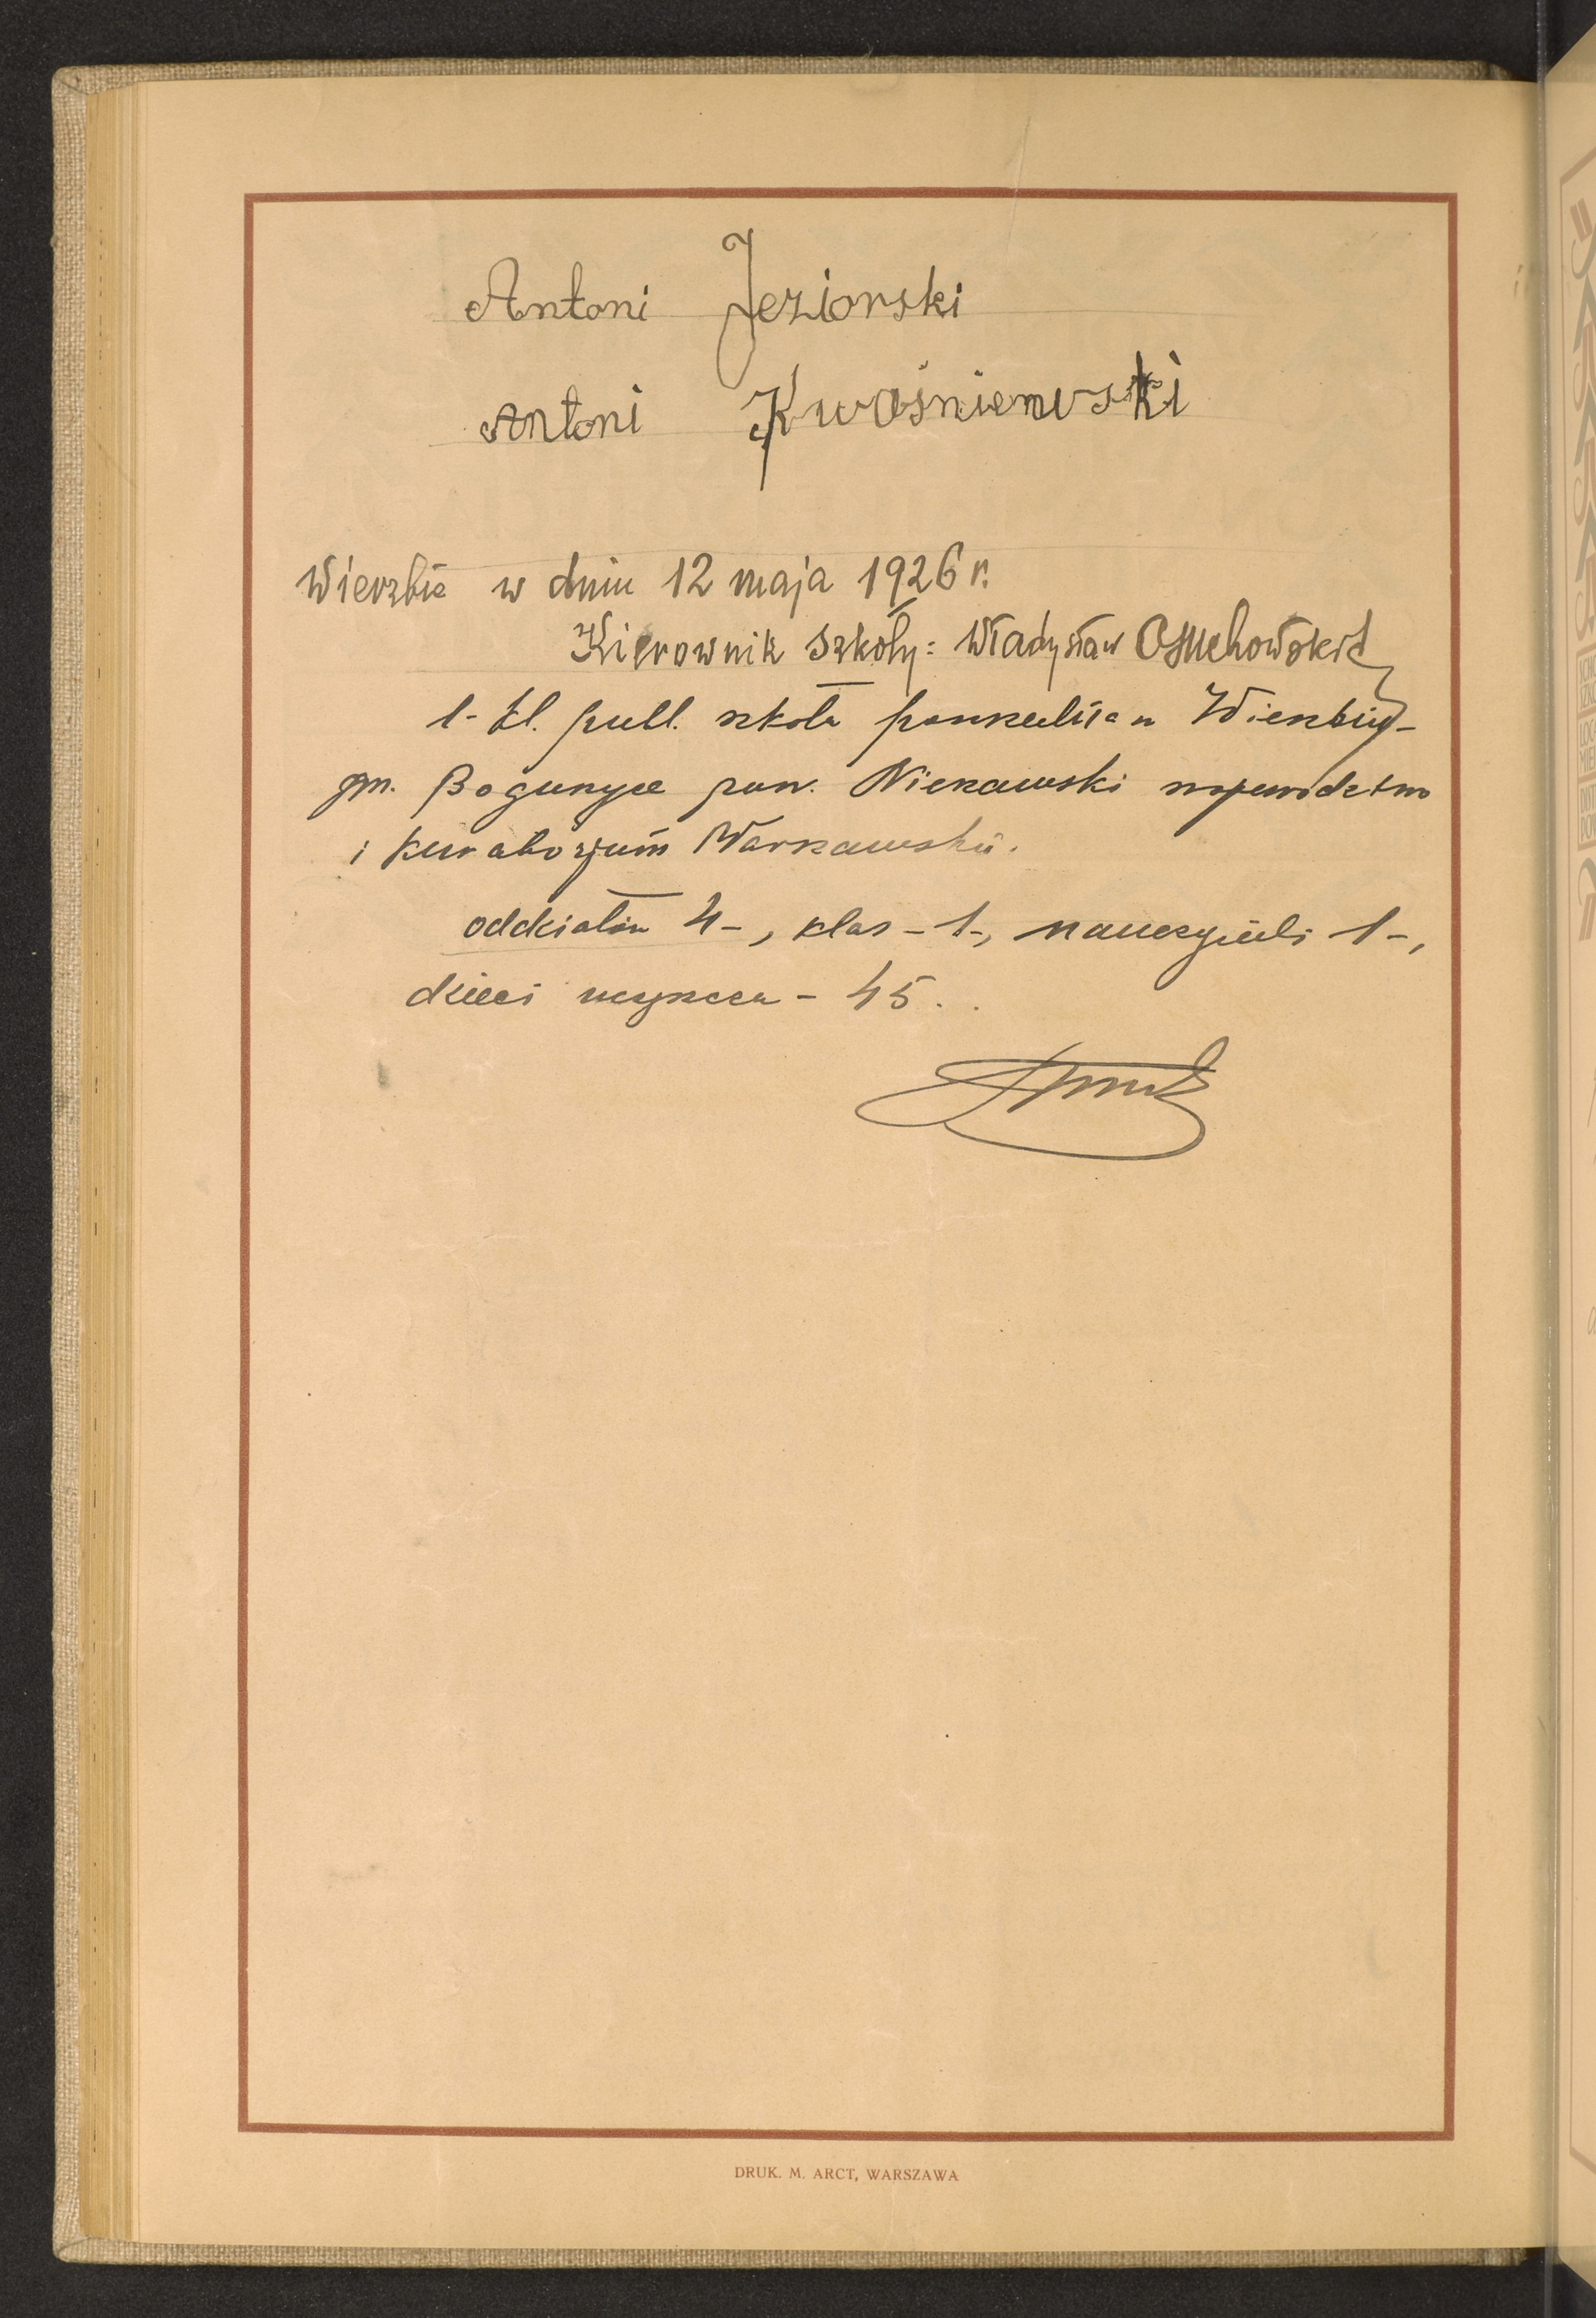 Antoni Jeziorski
Antoni Kwaśniewski
Wierzbie w dniu 12 maja 1926 r.
Kierownik szkoły: Władysław Osuchowski
1- kl. publ. szkoła powszechna w Wierzbiu-
gm. Boguszyce pow. Nieszawski województwo
i kuratorjum Warszawskie.
oddziałów 4-, klas - 1-, nauczycieli 1-,
dzieci uczęszcza - 45.
DRUK. M. ARCT, WARSZAWA